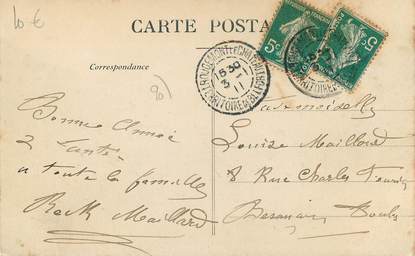 10 €
CARTE POSTA
Correspondance
90
15 30
3 -1
11
5c
5c
Bonne Année
& Santé
a toute la famille
Maillard
Mademoiselle
Louise Maillard
8 Rue Charles
Besançon Doubs